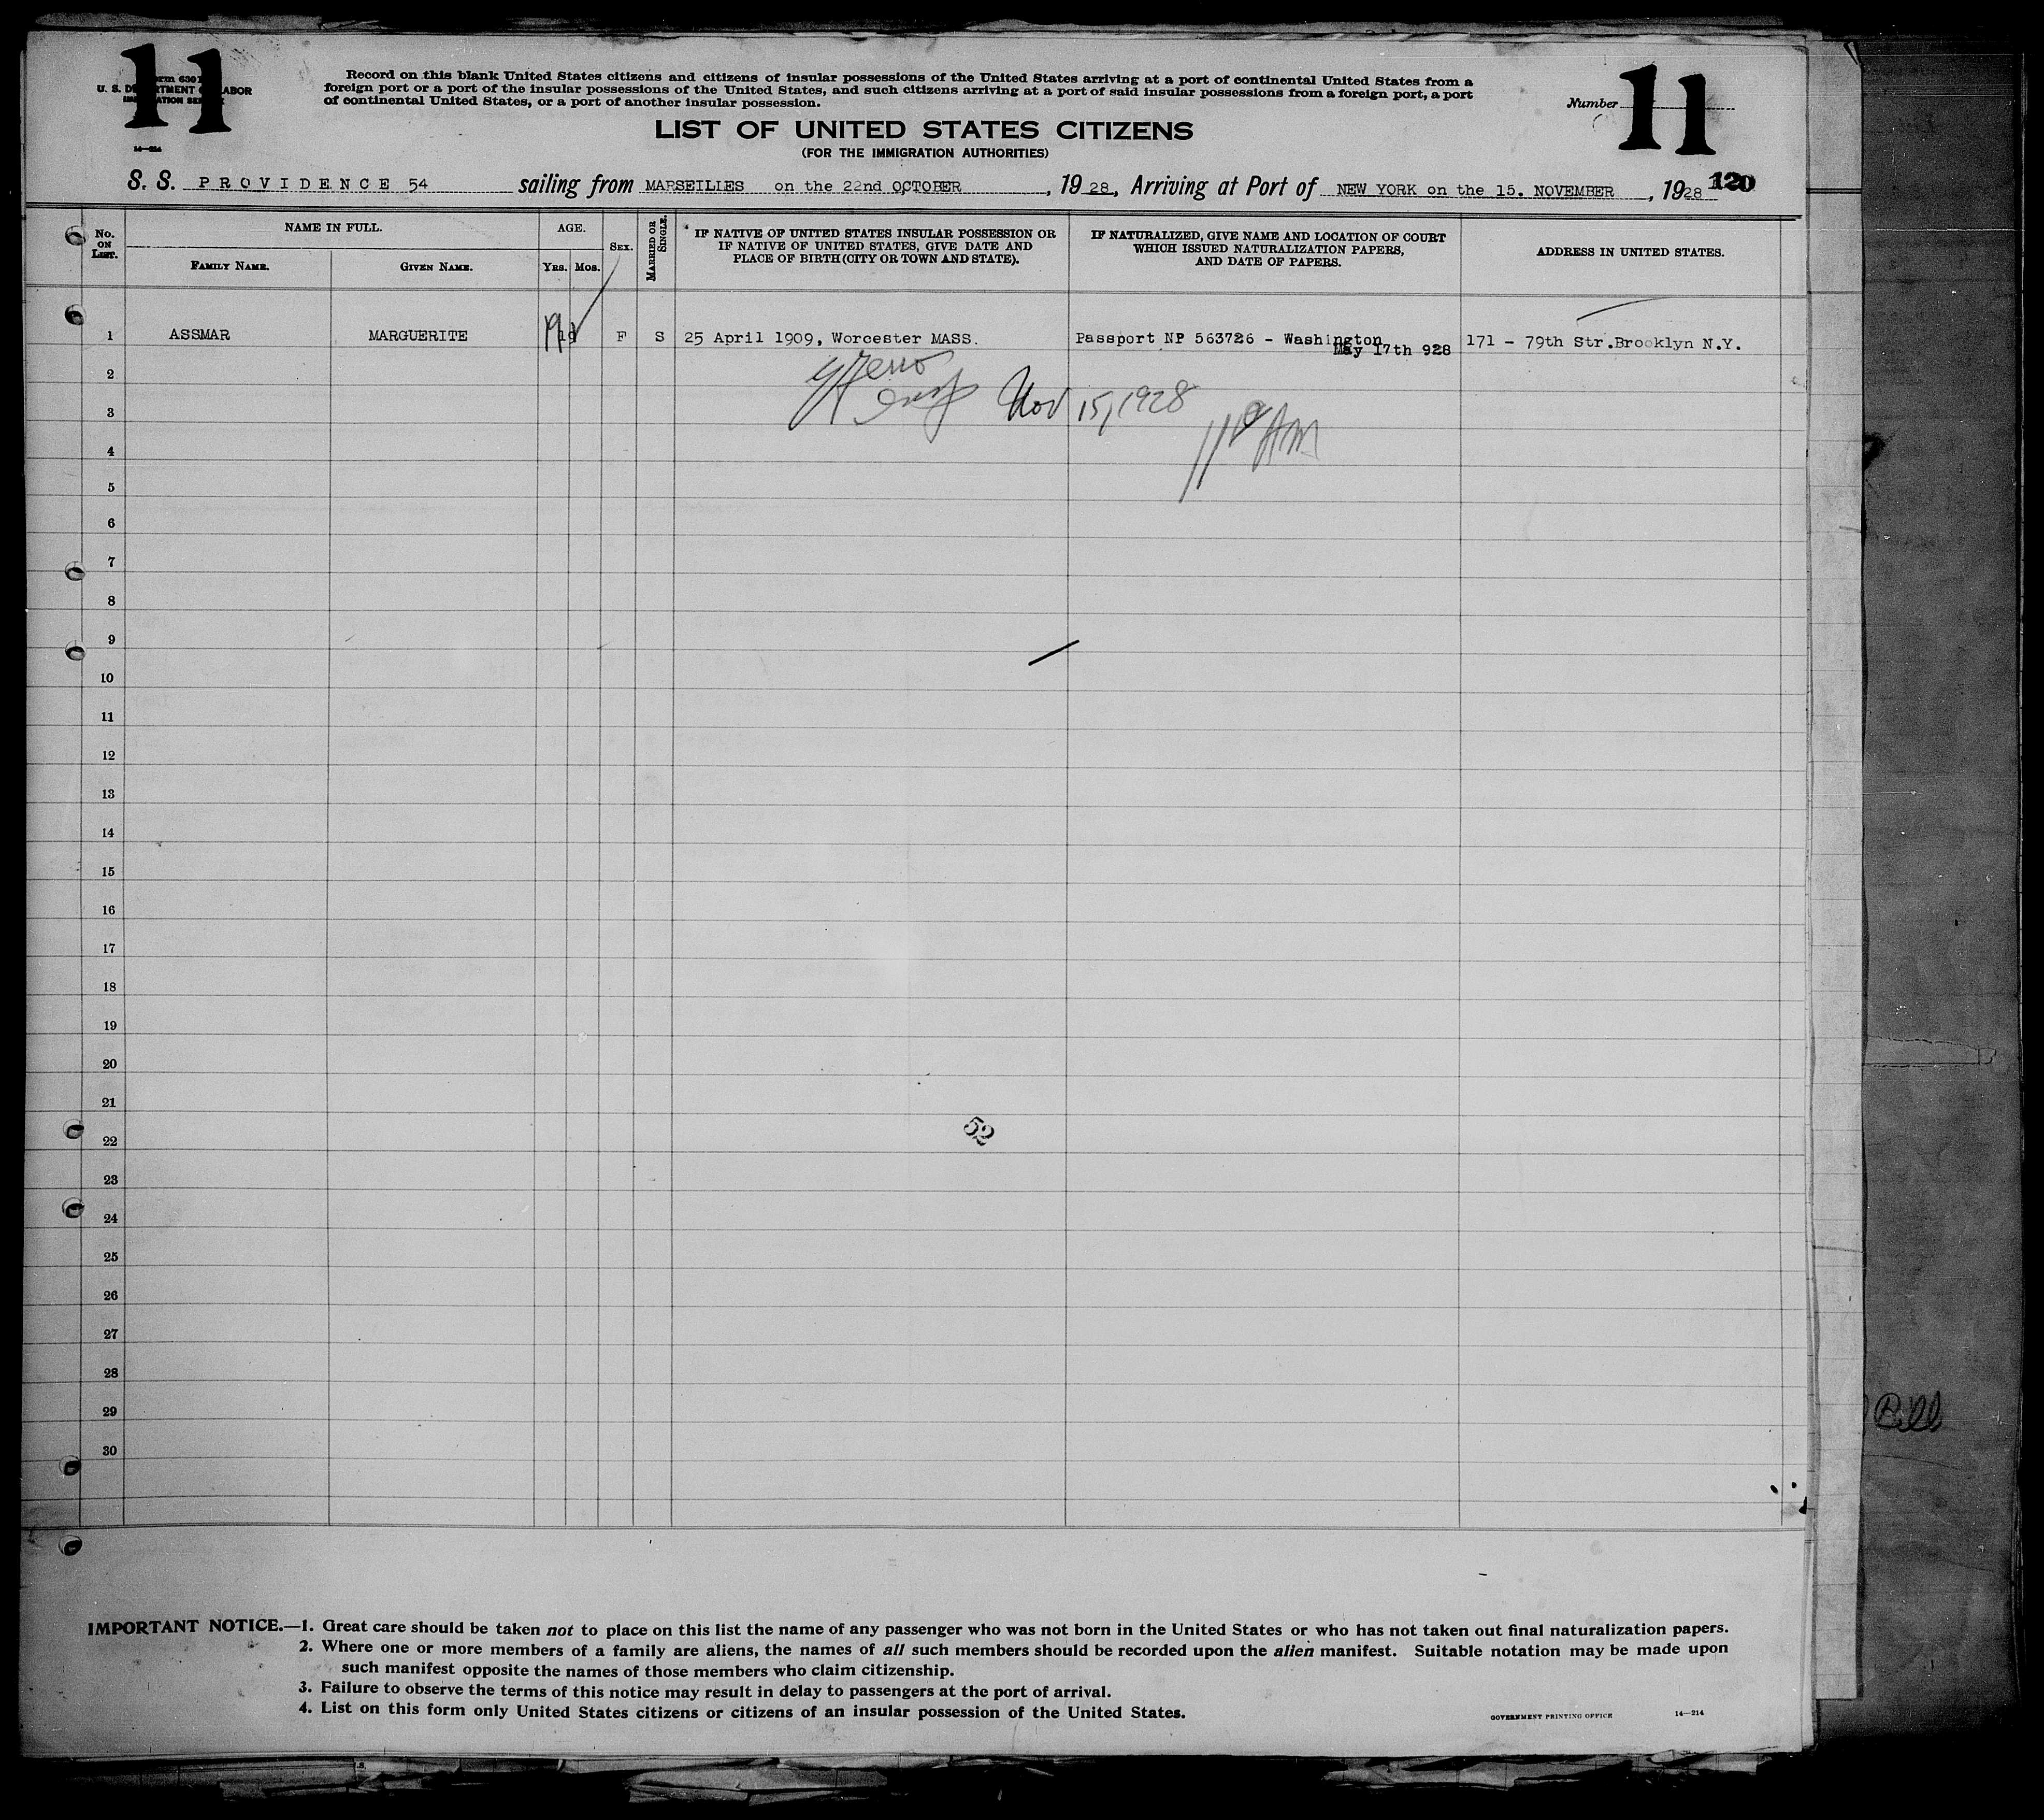 11
Form 630
U. S. DEPARTMENT OF LABOR
IMMIGRATION SERVICE
14—214
Record on this blank United States citizens and citizens of insular possessions of the United States arriving at a port of continental United States from a
foreign port or a port of the insular possessions of the United States, and such citizens arriving at a port of said insular possessions from a foreign port, a port
of continental United States, or a port of another insular possession.
Number
11
LIST OF UNITED STATES CITIZENS
(FOR THE IMMIGRATION AUTHORITIES)
S. S. PROVIDENCE 54 sailing from MARSEILLES on the 22nd OCTOBER, 1928, Arriving at Port of NEW YORK on the 15. NOVEMBER, 1928 120
No. ON LIST.
NAME IN FULL.
FAMILY NAME. GIVEN NAME.
AGE.
YRS. MOS.
SEX.
MARRIED OR SINGLE.
IF NATIVE OF UNITED STATES INSULAR POSSESSION OR
IF NATIVE OF UNITED STATES, GIVE DATE AND
PLACE OF BIRTH (CITY OR TOWN AND STATE).
IF NATURALIZED, GIVE NAME AND LOCATION OF COURT
WHICH ISSUED NATURALIZATION PAPERS,
AND DATE OF PAPERS.
ADDRESS IN UNITED STATES.
1 ASSMAR MARGUERITE 19 F S 25 April 1909, Worcester MASS. Passport Nº 563726 - Washington 171 - 79th Str.Brooklyn N.Y.
May 17th 928
2
3 Nov 15, 1928
4 AM
5
6
7
8
9
10
11
12
13
14
15
16
17
18
19
20
21
52
22
23
24
25
26
27
28
29
Bill
30
IMPORTANT NOTICE.—1. Great care should be taken not to place on this list the name of any passenger who was not born in the United States or who has not taken out final naturalization papers.
2. Where one or more members of a family are aliens, the names of all such members should be recorded upon the alien manifest. Suitable notation may be made upon
such manifest opposite the names of those members who claim citizenship.
3. Failure to observe the terms of this notice may result in delay to passengers at the port of arrival.
4. List on this form only United States citizens or citizens of an insular possession of the United States.
GOVERNMENT PRINTING OFFICE 14—214